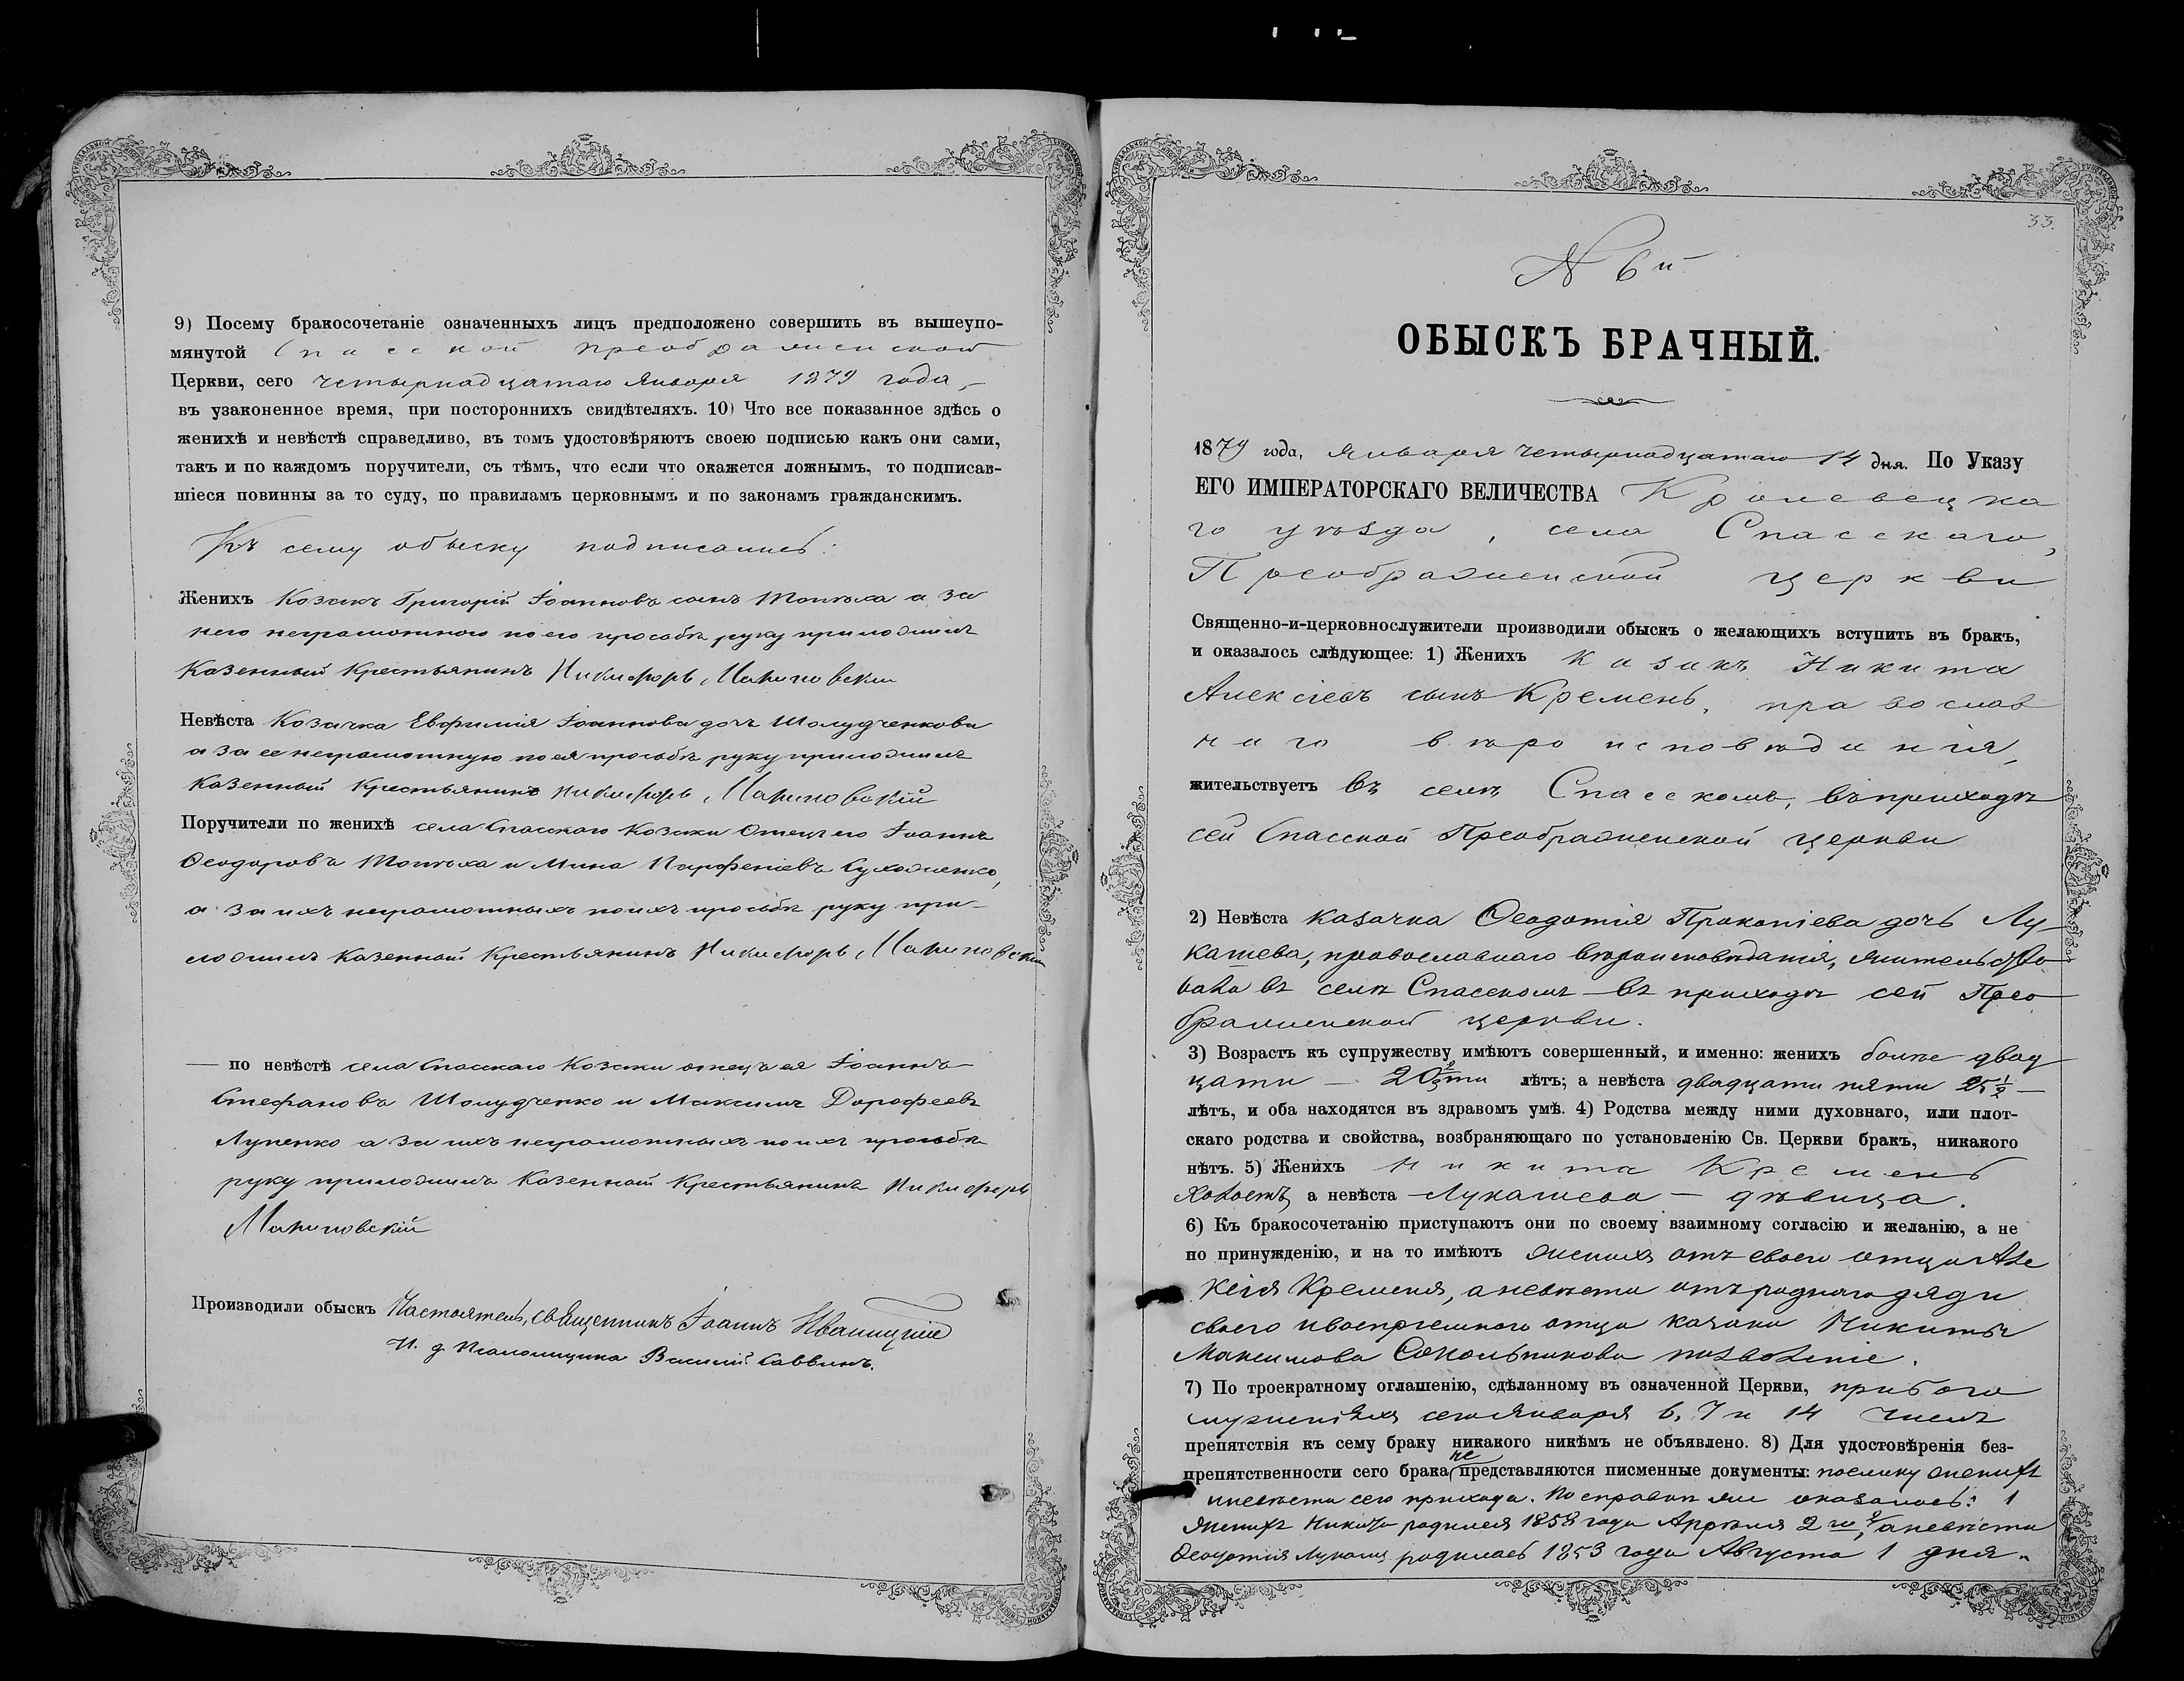 9) Посему бракосочетаніе означенныхъ лицъ предположено совершить въ вышеупо-
мянутой Спасской преображенской
Церкви, сего четырнадцатаго Января 1879 года,
въ узаконенное время, при постороннихъ свидѣтеляхъ. 10) Что все показанное здѣсь о
женихѣ и невѣстѣ справедливо, въ томъ удостовѣряютъ своею подписью какъ они сами,
такъ и по каждомъ поручители, съ тѣмъ, что если что окажется ложнымъ, то подписав-
шіеся повинны за то суду, по правиламъ церковнымъ и по законамъ гражданскимъ.
Къ сему обыску подписались:
Женихъ Козакъ Григорій Іоанновъ сынъ а за
него неграмотного по его прозьбѣ руку приложилъ
Казенный Крестьянинъ Никифоръ
Невѣста Козачка Евфимія Іоаннова дочь Шолудченкова
а за ее неграмотную по ея прозьбѣ руку приложилъ
Казенный Крестьянинъ Никифоръ
Поручители по женихѣ села Спасскаго Козаки Отецъ его Іоаннъ
Ѳеодоровъ и Мина Парфеніевъ
а за ихъ неграмотныхъ по ихъ прозьбѣ руку при-
ложилъ Казенный Крестьянинъ Никифоръ
— по невѣстѣ села Спасскаго Козаки отецъ ея Іоаннъ
Стефановъ Шолудченко и Максимъ Дорофеевъ
Лупенко а за ихъ неграмотныхъ по ихъ прозьбѣ
руку приложилъ Казенный Крестьянинъ Никифоръ
Производили обыскъ Настоятель, священникъ Іоаннъ
И. д. Псаломщика Василій Саввинъ.
33.
N 6й
ОБЫСКЪ БРАЧНЫЙ.
1879 года, Января четырнадцатаго 14 дня. По Указу
ЕГО ИМПЕРАТОРСКАГО ВЕЛИЧЕСТВА Кролевецка
го уѣзда, села Спасскаго,
Преображенской церкви
Священно-и-церковнослужители производили обыскъ о желающихъ вступить въ бракъ,
и оказалось слѣдующее: 1) Женихъ казакъ Никита
Алексіевъ сынъ Кремень, православ
наго вѣроисповѣданія,
жительствуетъ въ селѣ Спасскомъ, въ приходѣ
сей Спасской Преображенской церкви
2) Невѣста казачка Ѳеодотія Прокопіева дочь Лу-
кашева, православнаго вѣроисповѣданія, жительство
вала въ селѣ Спасскомъ въ приходѣ сей Прео
браженской церкви.
3) Возрастъ къ супружеству имѣютъ совершенный, и именно: женихъ болѣе двад
цати — 20 лѣтъ; а невѣста двадцати пяти 25 ½ —
лѣтъ, и оба находятся въ здравомъ умѣ. 4) Родства между ними духовнаго, или плот-
скаго родства и свойства, возбраняющаго по установленію Св. Церкви бракъ, никакого
нѣтъ. 5) Женихъ Никита Кремень
холостъ, а невѣста Лукашева — дѣвица.
6) Къ бракосочетанію приступаютъ они по своему взаимному согласію и желанію, а не
по принужденію, и на то имѣютъ женихъ отъ своего отца Але
ксія Кременя, а невѣста отъ роднаго дяди
своего и воспріемнаго отца казака Никиты
Максимова Сокольникова позволеніе.
7) По троекратному оглашенію, сдѣланному въ означенной Церкви, при бого
служеніяхъ сего Января 6, 7 и 14 числъ
препятствія къ сему браку никакого никѣмъ не объявлено. 8) Для удостовѣренія без-
препятственности сего брака не представляются писменные документы: поелику женихъ
и невѣста сего прихода. По справкѣ же оказалось: 1
Женихъ Никита родился 1858 года Апрѣля 2 го, а невѣста
Ѳеодотія родилась 1853 года Августа 1 дня.